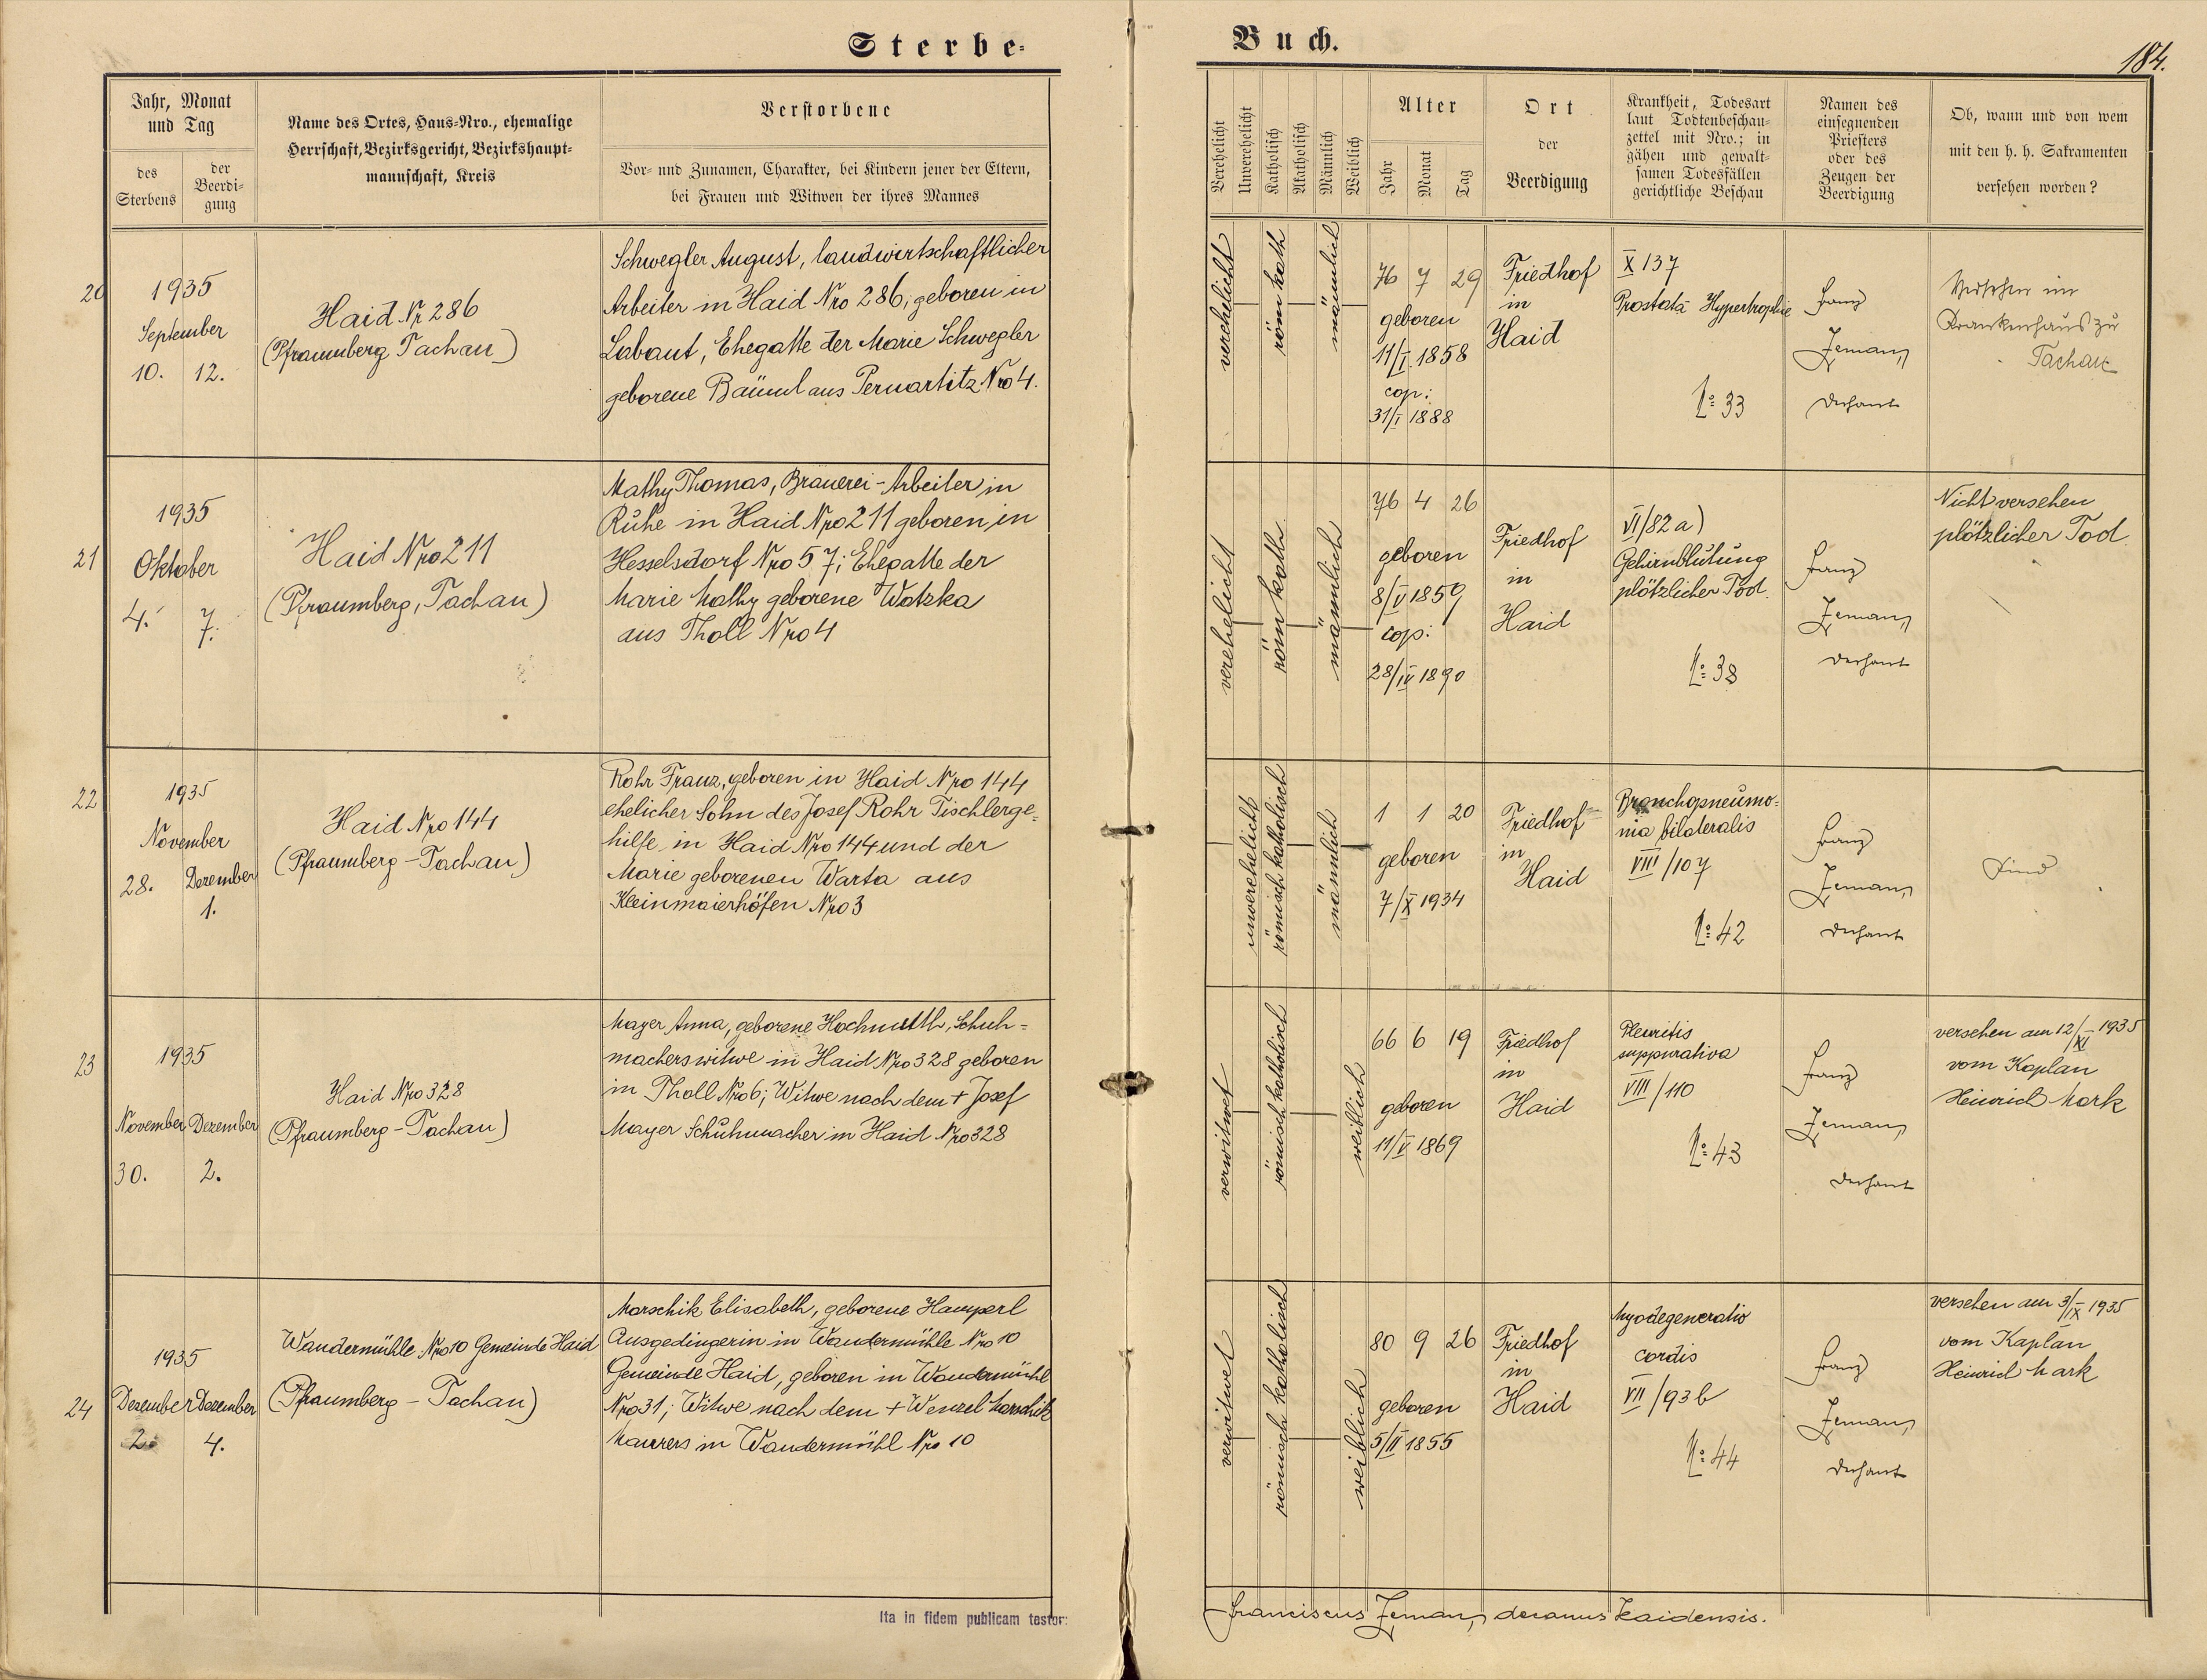 Sterbe-
Buch.
184.
Jahr, Monat
und Tag
des
Sterbens
der
Beerdi-
gung
Name des Ortes, Haus-Nro., ehemalige
Herrschaft, Bezirksgericht, Bezirkshaupt-
mannschaft, Kreis
Verstorbene
Vor- und Zunamen, Charakter, bei Kindern jener der Eltern,
bei Frauen und Witwen der ihres Mannes
Verehelicht
Unverehelicht
Katholisch
Akatholisch
Männlich
Weiblich
Alter
Jahr
Monat
Tag
Ort
der
Beerdigung
Krankheit, Todesart
laut Todtenbeschau-
zettel mit Nro.; in
gähen und gewalt-
samen Todesfällen
gerichtliche Beschau
Namen des
einsegnenden
Priesters
oder des
Zeugen der
Beerdigung
Ob, wann und von wem
mit den h. h. Sakramenten
versehen worden?
20
1935
September
10. 12.
Haid Nr 286
(Pfraumberg Tachau)
Schwegler August, landwirtschaftlicher
Arbeiter in Haid Nro 286, geboren in
Labant, Ehegatte der Marie Schwegler
geborene Bäuml aus Pernartitz Nro 4.
verehelicht
röm kath
männlich
76 7 29
geboren
11/I. 1858
cop:
31/I 1888
Friedhof
in
Haid
X 137
Prostata Hypertrophie
No: 33
Franz
Zeman,
Dechant
Versehen im
Krankenhaus zu
Tachau
21
1935
Oktober
4. 7.
Haid Nro 211
(Pfraumberg, Tachau)
Mathy Thomas, Brauerei-Arbeiter in
Ruhe in Haid Nro 211 geboren in
Hesselsdorf Nro 57; Ehegatte der
Marie Mathy geborene Watzka
aus Tholl Nro 4
verehelicht
röm kath
männlich
76 4 26
geboren
8/V 1859
cop:
28/IV 1890
Friedhof
in
Haid
VI/82 a)
Gehirnblutung
plötzlicher Tod.
No: 38
Franz
Zeman,
Dechant
Nicht versehen
plötzlicher Tod.
22
1935
November
28. Dezember
1.
Haid Nro 144
(Pfraumberg - Tachau)
Rohr Franz, geboren in Haid Nro 144
ehelicher Sohn des Josef Rohr Tischlerge-
hilfe in Haid Nro 144 und der
Marie geborenen Warta aus
Kleinmaierhöfen Nro 3
unverehelicht
römisch katholisch
männlich
1 1 20
geboren
7/X 1934
Friedhof
in
Haid
Bronchopneumo-
nia bilateralis
VIII/107
No: 42
Franz
Zeman,
Dechant
Kind
23
1935
November Dezember
30. 2.
Haid Nro 328
(Pfraumberg - Tachau)
Mayer Anna, geborene Hochmuth, Schuh-
macherswitwe in Haid Nro 328 geboren
in Tholl Nro 6; Witwe nach dem + Josef
Mayer Schuhmacher in Haid Nro 328
verwitwet
römisch katholisch
weiblich
66 6 19
geboren
11/V 1869
Friedhof
in
Haid
Pleuritis
suppurativa
VIII/110
No: 43
Franz
Zeman,
Dechant
versehen am 12/XI 1935
vom Kaplan
Heinrich Mark
24
1935
Dezember Dezember
2. 4.
Wandermühle Nro 10 Gemeinde Haid
(Pfraumberg - Tachau)
Marschik Elisabeth, geborene Hamperl
Ausgedingerin in Wandermühle Nro 10
Gemeinde Haid, geboren in Wandermühl
Nro 31; Witwe nach dem + Wenzel Marschik
Maurers in Wandermühl Nro 10
verwitwet
römisch katholisch
weiblich
80 9 26
geboren
5/II 1855
Friedhof
in
Haid
Myodegeneratio
cordis
VII/93 b
No: 44
Franz
Zeman,
Dechant
versehen am 3/IX 1935
vom Kaplan
Heinrich Mark
Ita in fidem publicam testor:
Franciscus Zeman, decanus Haidensis.